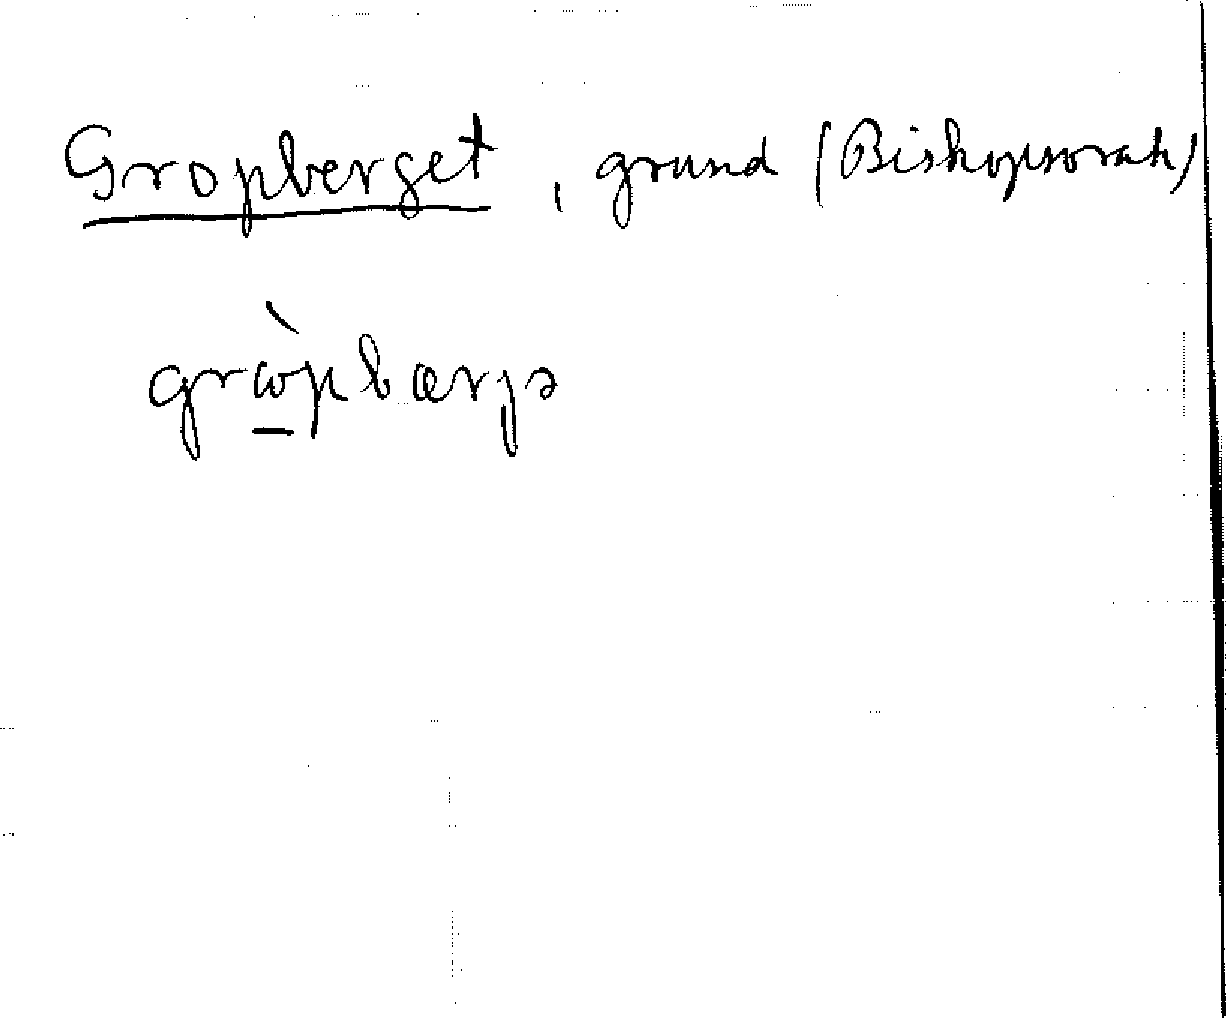 Gropberget, grund (Biskopsorah)
gròpbærjə